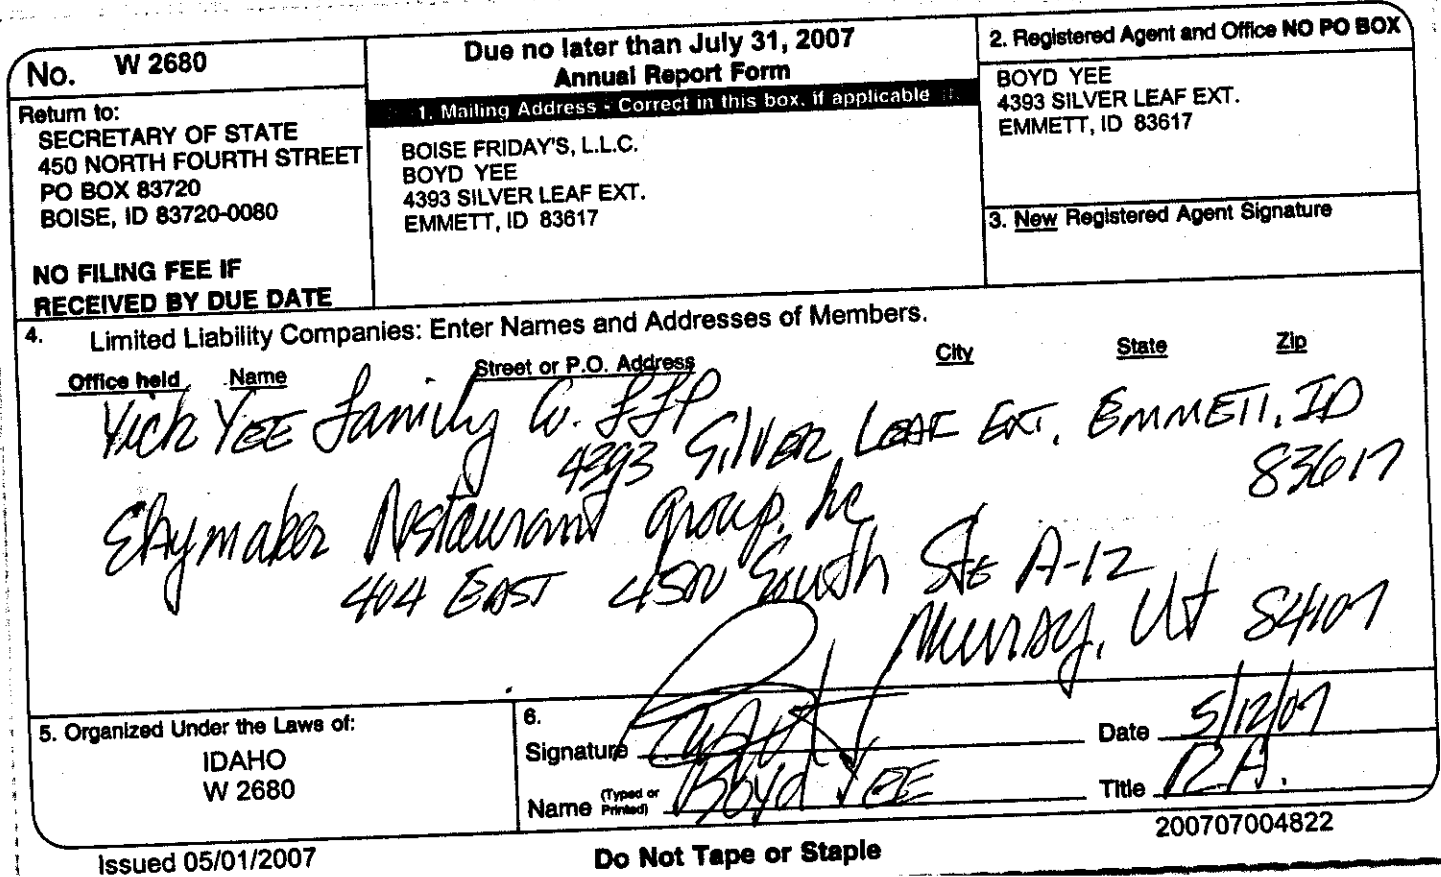 No. W 2680
Return to:
SECRETARY OF STATE
450 NORTH FOURTH STREET
PO BOX 83720
BOISE, ID 83720-0080
NO FILING FEE IF
RECEIVED BY DUE DATE
Due no later than July 31, 2007
Annual Report Form
1. Mailing Address - Correct in this box, if applicable
BOISE FRIDAY'S, L.L.C.
BOYD YEE
4393 SILVER LEAF EXT.
EMMETT, ID 83617
2. Registered Agent and Office NO PO BOX
BOYD YEE
4393 SILVER LEAF EXT.
EMMETT, ID 83617
3. New Registered Agent Signature
4. Limited Liability Companies: Enter Names and Addresses of Members.
Office held Name Street or P.O. Address City State Zip
Yick YEE Family Co. LLP
4393 SilVER LEAF EXT. EMMETT, ID
83617
Restaurant Group, Inc
404 EAST 4500 South Ste A-12
Murray, Ut 84107
5. Organized Under the Laws of:
IDAHO
W 2680
6.
Signature
Date 5/12/07
Name (Typed or Printed) Boyd YEE
Title R.A.
Issued 05/01/2007
Do Not Tape or Staple
200707004822